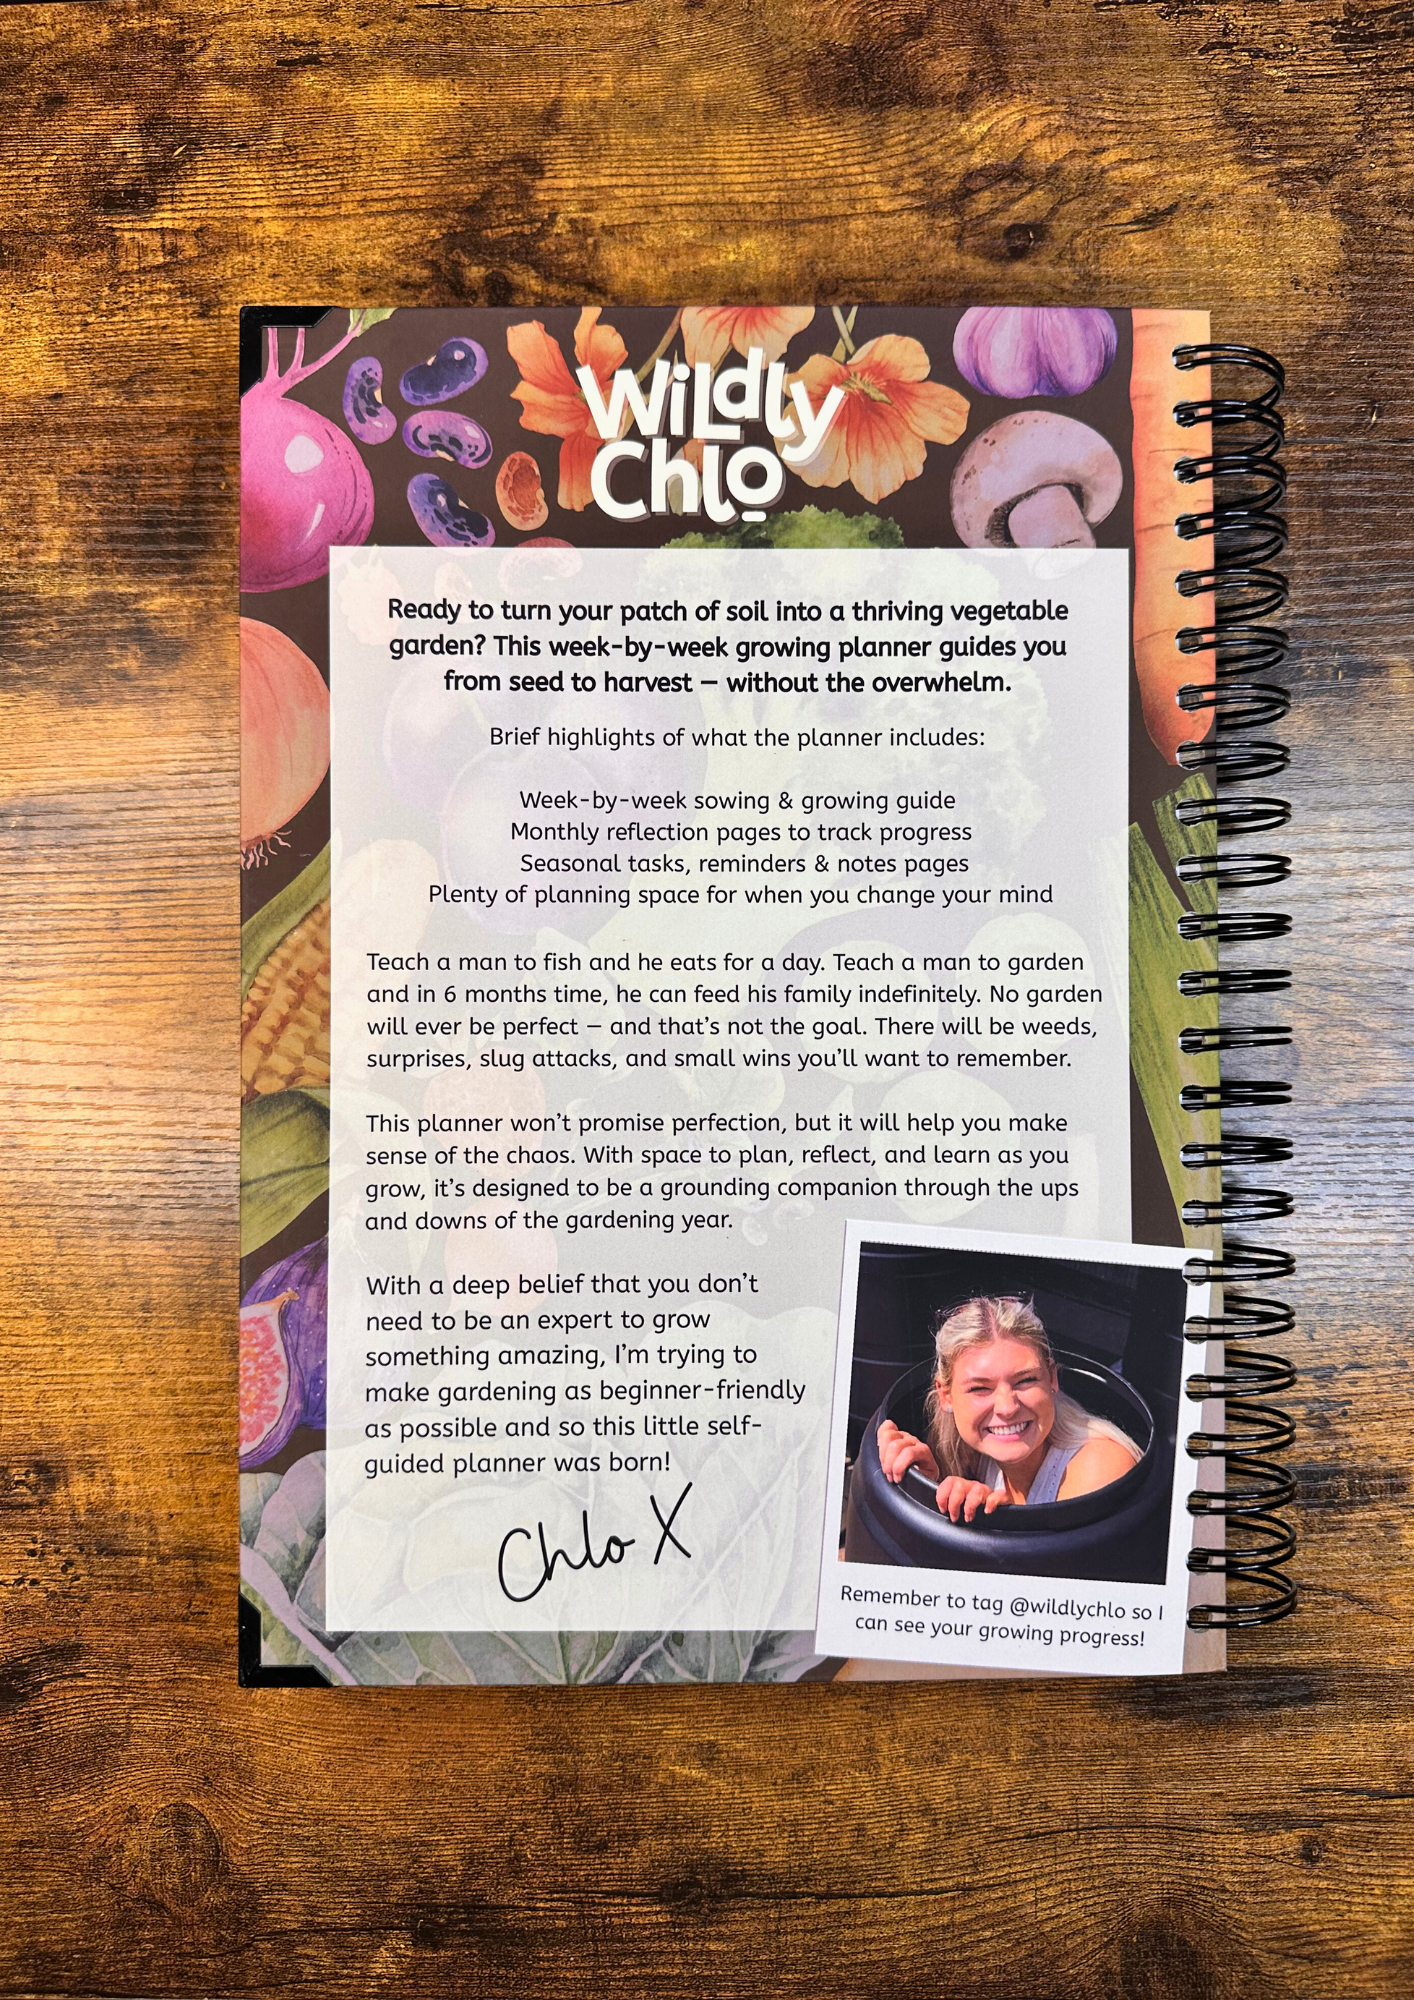 Wildly
Chlo
Ready to turn your patch of soil into a thriving vegetable
garden? This week-by-week growing planner guides you
from seed to harvest – without the overwhelm.
Brief highlights of what the planner includes:
Week-by-week sowing & growing guide
Monthly reflection pages to track progress
Seasonal tasks, reminders & notes pages
Plenty of planning space for when you change your mind
Teach a man to fish and he eats for a day. Teach a man to garden
and in 6 months time, he can feed his family indefinitely. No garden
will ever be perfect – and that's not the goal. There will be weeds,
surprises, slug attacks, and small wins you'll want to remember.
This planner won't promise perfection, but it will help you make
sense of the chaos. With space to plan, reflect, and learn as you
grow, it's designed to be a grounding companion through the ups
and downs of the gardening year.
With a deep belief that you don't
need to be an expert to grow
something amazing, I'm trying to
make gardening as beginner-friendly
as possible and so this little self-
guided planner was born!
Chlo X
Remember to tag @wildlychlo so I
can see your growing progress!